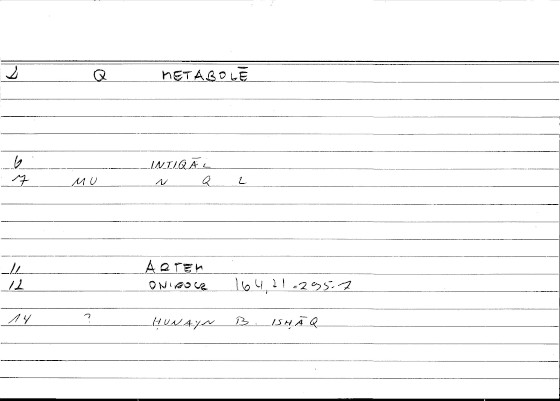 1 Q METABOLĒ
6 INTIQĀL
7 MU N Q L
11 ARTEM
12 ONIROCR 164,21 - 295.7
14 ? ḤUNAYN B. ISḤĀQ